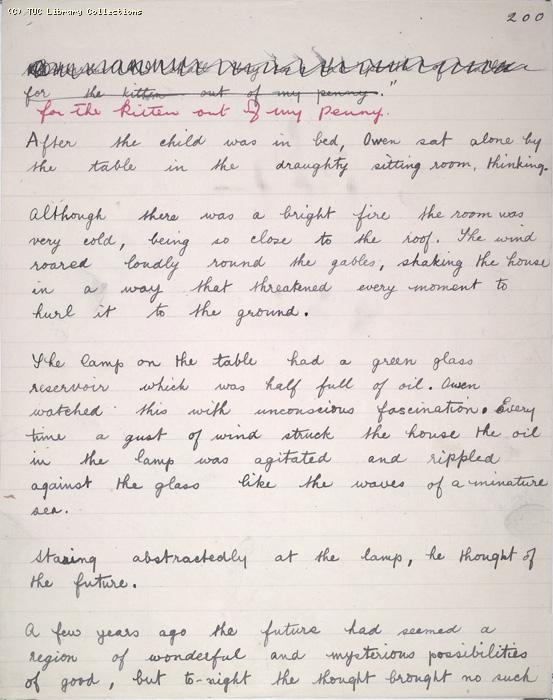 (C) TUC Library Collections
200
for the kitten out of my penny."
for the kitten out of my penny.
After the child was in bed, Owen sat alone by
the table in the draughty sitting room, thinking.
Although there was a bright fire the room was
very cold, being so close to the roof. The wind
roared loudly round the gables, shaking the house
in a way that threatened every moment to
hurl it to the ground.
The lamp on the table had a green glass
reservoir which was half full of oil. Owen
watched this with unconscious fascination. Every
time a gust of wind struck the house the oil
in the lamp was agitated and rippled
against the glass like the waves of a minature
sea.
Staring abstractedly at the lamp, he thought of
the future.
A few years ago the future had seemed a
region of wonderful and mysterious possibilities
of good, but to-night the thought brought no such